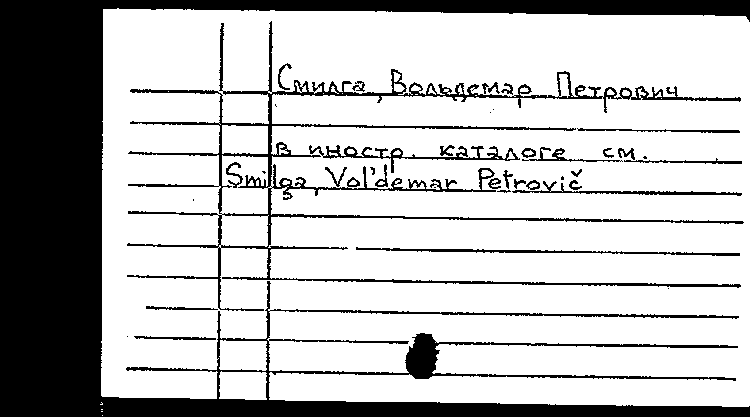 Смилга, Вольдемар Петрович
в иностр. каталоге см.
Smilga, Vol'demar Petrovič